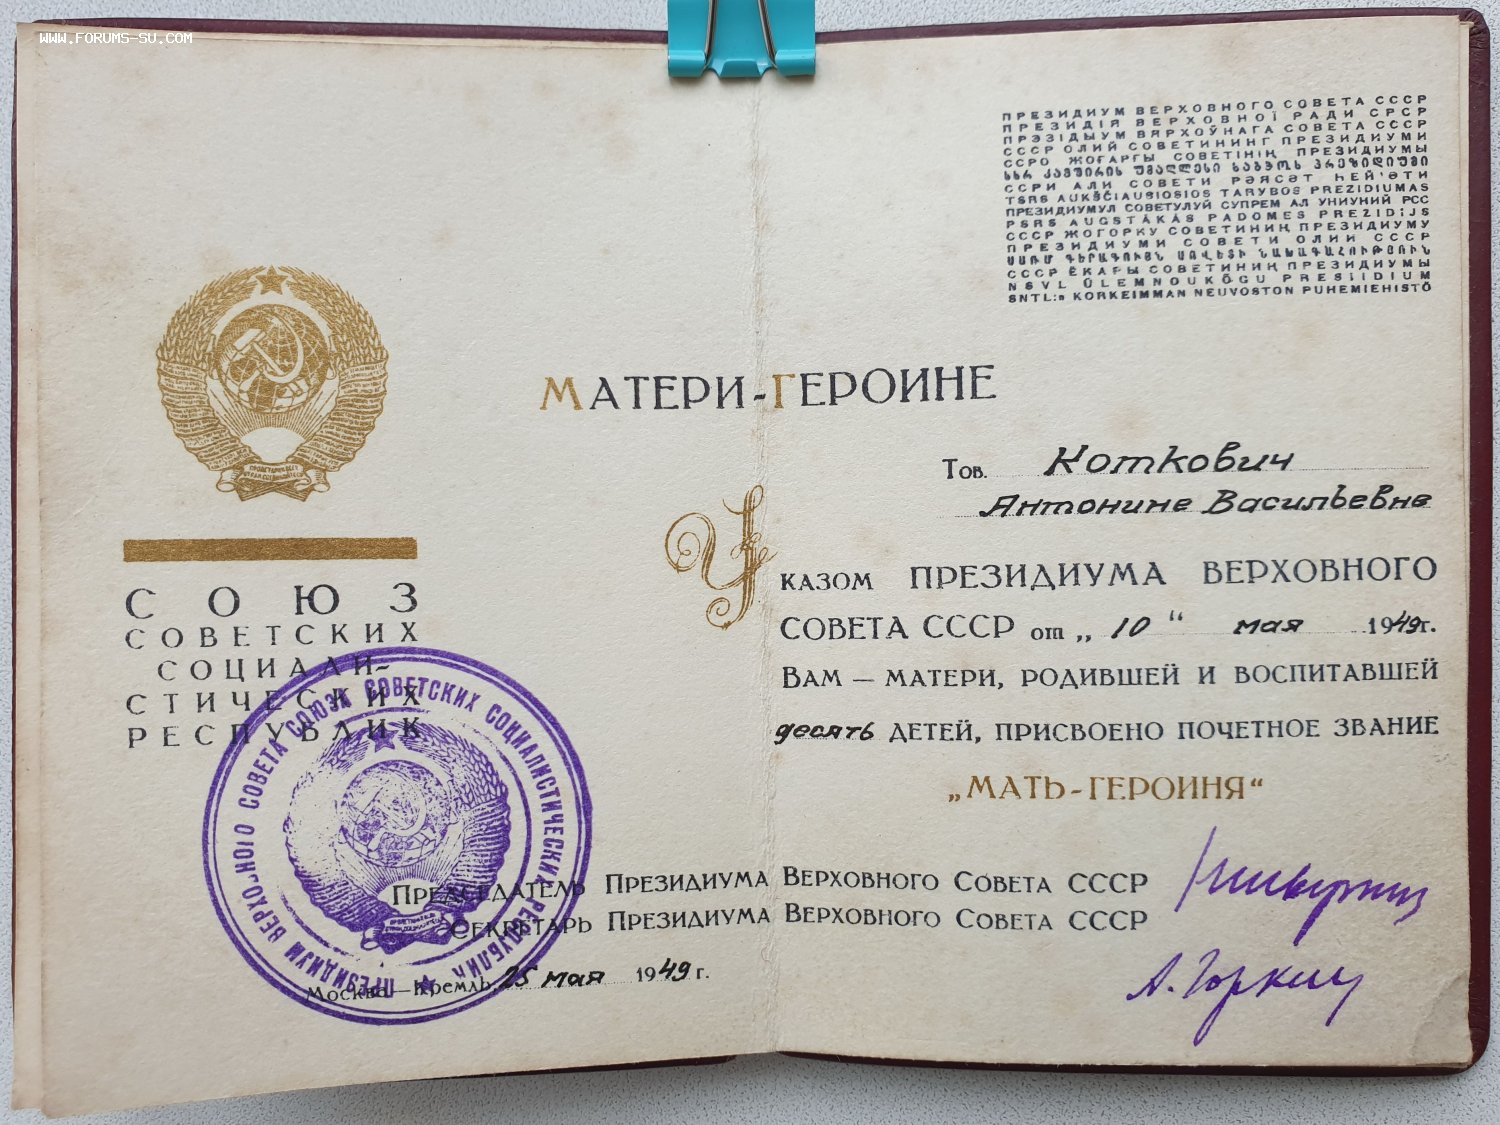 WWW.FORUMS-SU.COM
ПРЕЗИДИУМ ВЕРХОВНОГО СОВЕТА СССР
ПРЕЗИДІЯ ВЕРХОВНОЇ РАДИ СРСР
ПРЭЗІДЫУМ ВЯРХОЎНАГА СОВЕТА СССР
СССР ОЛИЙ СОВЕТИНИНГ ПРЕЗИДИУМИ
ССРО ЖОҒАРҒЫ СОВЕТІНІҢ ПРЕЗИДИУМЫ
სსრ კავშირის უმაღლესი საბჭოს პრეზიდიუმი
ССРИ АЛИ СОВЕТИ РӘЯСӘТ ҺЕЙ'ӘТИ
TSRS AUKŠČIAUSIOSIOS TARYBOS PREZIDIUMAS
ПРЕЗИДИУМУЛ СОВЕТУЛУЙ СУПРЕМ АЛ УНИУНИЙ РСС
PSRS AUGSTĀKĀS PADOMES PREZIDIJS
СССР ЖОГОРКУ СОВЕТИНИҢ ПРЕЗИДИУМУ
ПРЕЗИДИУМИ СОВЕТИ ОЛИИ СССР
ՍՍՌՄ ԳԵՐԱԳՈՒՅՆ ՍՈՎԵՏԻ ՆԱԽԱԳԱՀՈՒԹՅՈՒՆ
СССР ЁКАРЫ СОВЕТИНИҢ ПРЕЗИДИУМЫ
NSVL ÜLEMNOUKÕGU PRESIIDIUM
SNTL:n KORKEIMMAN NEUVOSTON PUHEMIEHISTÖ
МАТЕРИ-ГЕРОИНЕ
Тов. Коткович
Антонине Васильевне
УКАЗОМ ПРЕЗИДИУМА ВЕРХОВНОГО
СОВЕТА СССР от „ 10 “ мая 1949г.
ВАМ — МАТЕРИ, РОДИВШЕЙ И ВОСПИТАВШЕЙ
десять ДЕТЕЙ, ПРИСВОЕНО ПОЧЕТНОЕ ЗВАНИЕ
„МАТЬ-ГЕРОИНЯ“
СОЮЗ
СОВЕТСКИХ
СОЦИАЛИ-
СТИЧЕСКИХ
РЕСПУБЛИК
ПРЕЗИДИУМ ВЕРХОВНОГО СОВЕТА СОЮЗА СОВЕТСКИХ СОЦИАЛИСТИЧЕСКИХ РЕСПУБЛИК
ПРЕДСЕДАТЕЛЬ ПРЕЗИДИУМА ВЕРХОВНОГО СОВЕТА СССР
СЕКРЕТАРЬ ПРЕЗИДИУМА ВЕРХОВНОГО СОВЕТА СССР
А. Горкин
Москва — Кремль, 25 мая 1949 г.